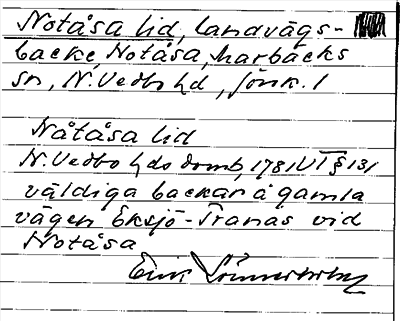 Notåsa lid, landvägs-
backe, Notåsa, Marbäcks
sn, N. Vedbo hd, Jönk. l
Nåtåsa lid
N. Vedbo hds domb, 1781 VI § 131
väldiga backar å gamla
vägen Eksjö - Tranås vid
Notåsa
Erik